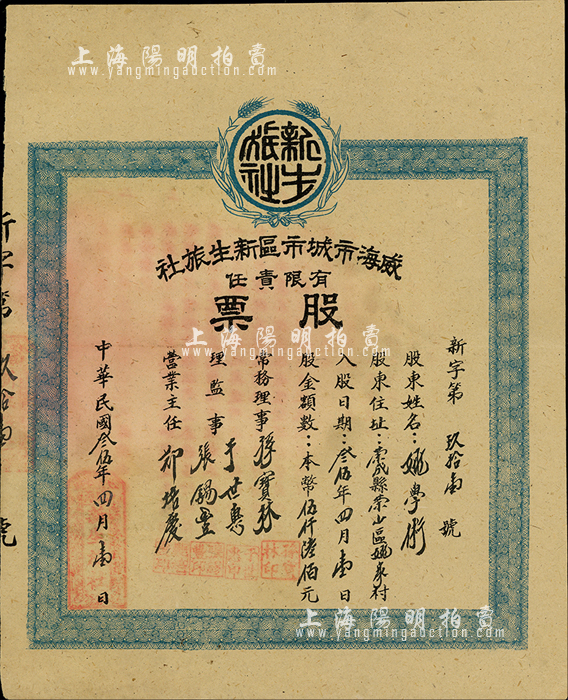 上海陽明拍賣
www.yangmingauction.com
新生旅社
威海市城市區新生旅社
有限責任
股票
新字第 玖拾壹 號
股東姓名：姚學術
股東住址：榮成縣崇山區姚家村
入股日期：叁伍年四月壹日
股金額數：本幣伍仟陸佰元
常務理事 孫寶林
理監事 于世惠 張錫盤
營業主任 邵培慶
中華民國叁伍年四月壹日
新字第 玖拾壹 號
上海陽明拍賣
www.yangmingauction.com
上海陽明拍賣
www.yangmingauction.com